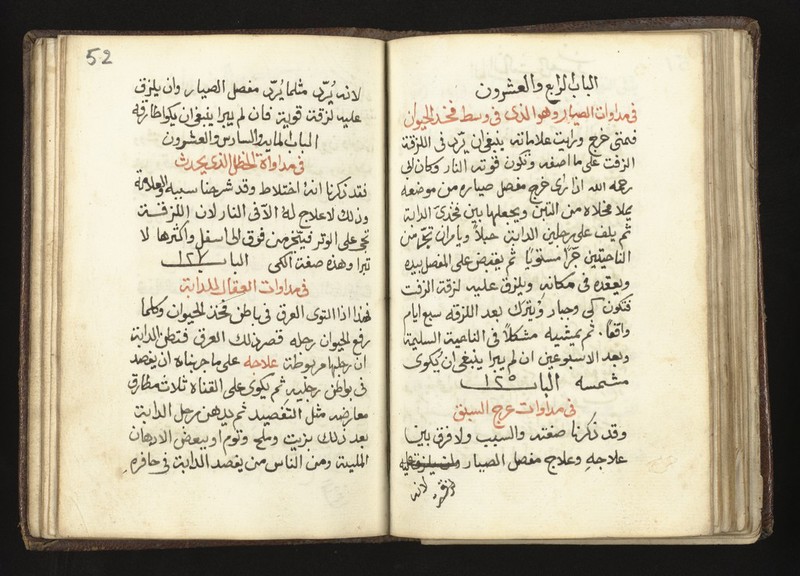 الباب الرابع والعشرون
فى مداوات الصيار وهو الذى فى وسط فخذ الحيوان
فمتى خرج ورايت علاماته ينبغى ان يرد فى اللزقة
الزفت على ما اصفه وتكون قوته النار وكان ابى
رحمه الله اذا راى خرج مفصل صياره من موضعه
يملا مخلاه من التبن ويجعلها بين فخذى الدابة
ثم يلف على رجلين الدابة حبلا ويامر ان تجر من
الناحيتين جرا مستويا ثم يقبض على المفصل بيده
ويعقده فى مكانه ويلزق عليه لزقة الزفت
فتكون كى وجبار ويترك بعد اللزقه سبع ايام
واقفا. ثم يمشيه مشكلا فى الناحية السليمة
وبعد الاسبوعين ان لم يبرا ينبغى ان يكوى
مشمسه الباب ١٢٥
فى مداوات عرج السبق
وقد ذكرنا صفته والسبب ولا فرق بين
علاجه وعلاج مفصل الصيار
لانه
52
لانه يُردّ مثلما يُردّ مفصل الصيار وان يلزق
عليه لزقت قوية فان لم يبرا ينبغى ان يكوا مطارقه
الباب الماية والسادس والعشرون
فى مداواة الخظل الذى يحدث
فقد ذكرنا انه اختلاط وقد شرحنا سببه والعلامة
وذلك لا علاج له الا فى النار لان اللزقة
تجى على الوتر فيتخ من فوق الى اسفل واكثرها لا
تبرا وهذه صفة الكى الباب ١٢٧
فى مداوات العقال للدابة
فهذا اذا التوى العرق فى باطن فخذ الحيوان وكلما
رفع الحيوان رجله قصر ذلك العرق فتظن الدابة
ان رجلها مربوطة علاجه على ما جربناه ان يفصد
فى بواطن رجليه ثم يكوى على القناة ثلاث مطارق
معارضه مثل التفصيد ثم يدهن رجل الدابة
بعد ذلك بزيت وملح وثوم او ببعض الادهان
الملينة ومن الناس من يفصد الدابة فى حافره